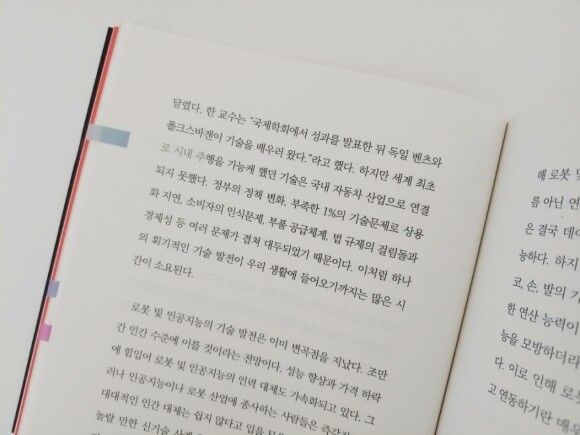 달렸다. 한 교수는 "국제학회에서 성과를 발표한 뒤 독일 벤츠와
폴크스바겐이 기술을 배우러 왔다."라고 했다. 하지만 세계 최초
로 시내 주행을 가능케 했던 기술은 국내 자동차 산업으로 연결
되지 못했다. 정부의 정책 변화, 부족한 1%의 기술문제로 상용
화 지연, 소비자의 인식문제, 부품 공급체계, 법 규제의 걸림돌과
경제성 등 여러 문제가 겹쳐 대두되었기 때문이다. 이처럼 하나
의 획기적인 기술 발전이 우리 생활에 들어오기까지는 많은 시
간이 소요된다.
로봇 및 인공지능의 기술 발전은 이미 변곡점을 지났다. 조만
간 인간 수준에 이를 것이라는 전망이다. 성능 향상과 가격 하락
에 힘입어 로봇 및 인공지능의 인력 대체도 가속화되고 있다. 그
러나 인공지능이나 로봇 산업에 종사하는 사람들은 즉각
대대적인 인간 대체는 쉽지 않다고 입을
놀랄 만한 신기술
해 로봇 및
름 아닌 연
은 결국 데이
능하다. 하지
코, 손, 발의 기
한 연산 능력이
능을 모방하더라
다. 이로 인해 로
고 연동하기란 매우